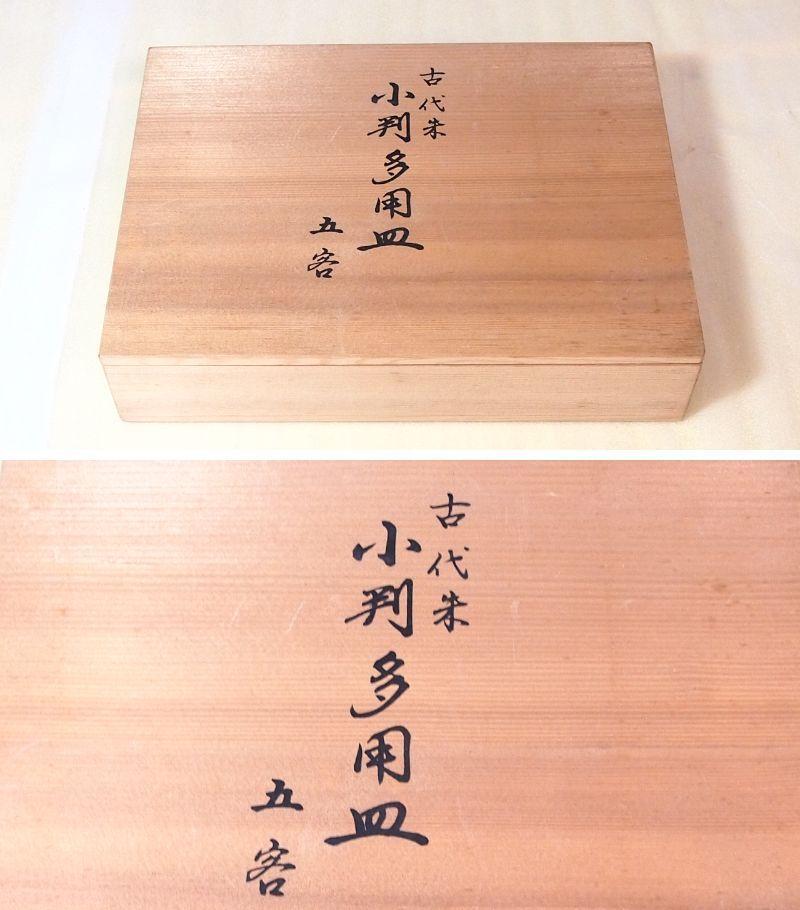 古代朱
小判多用皿
五客
古代朱
小判多用皿
五客